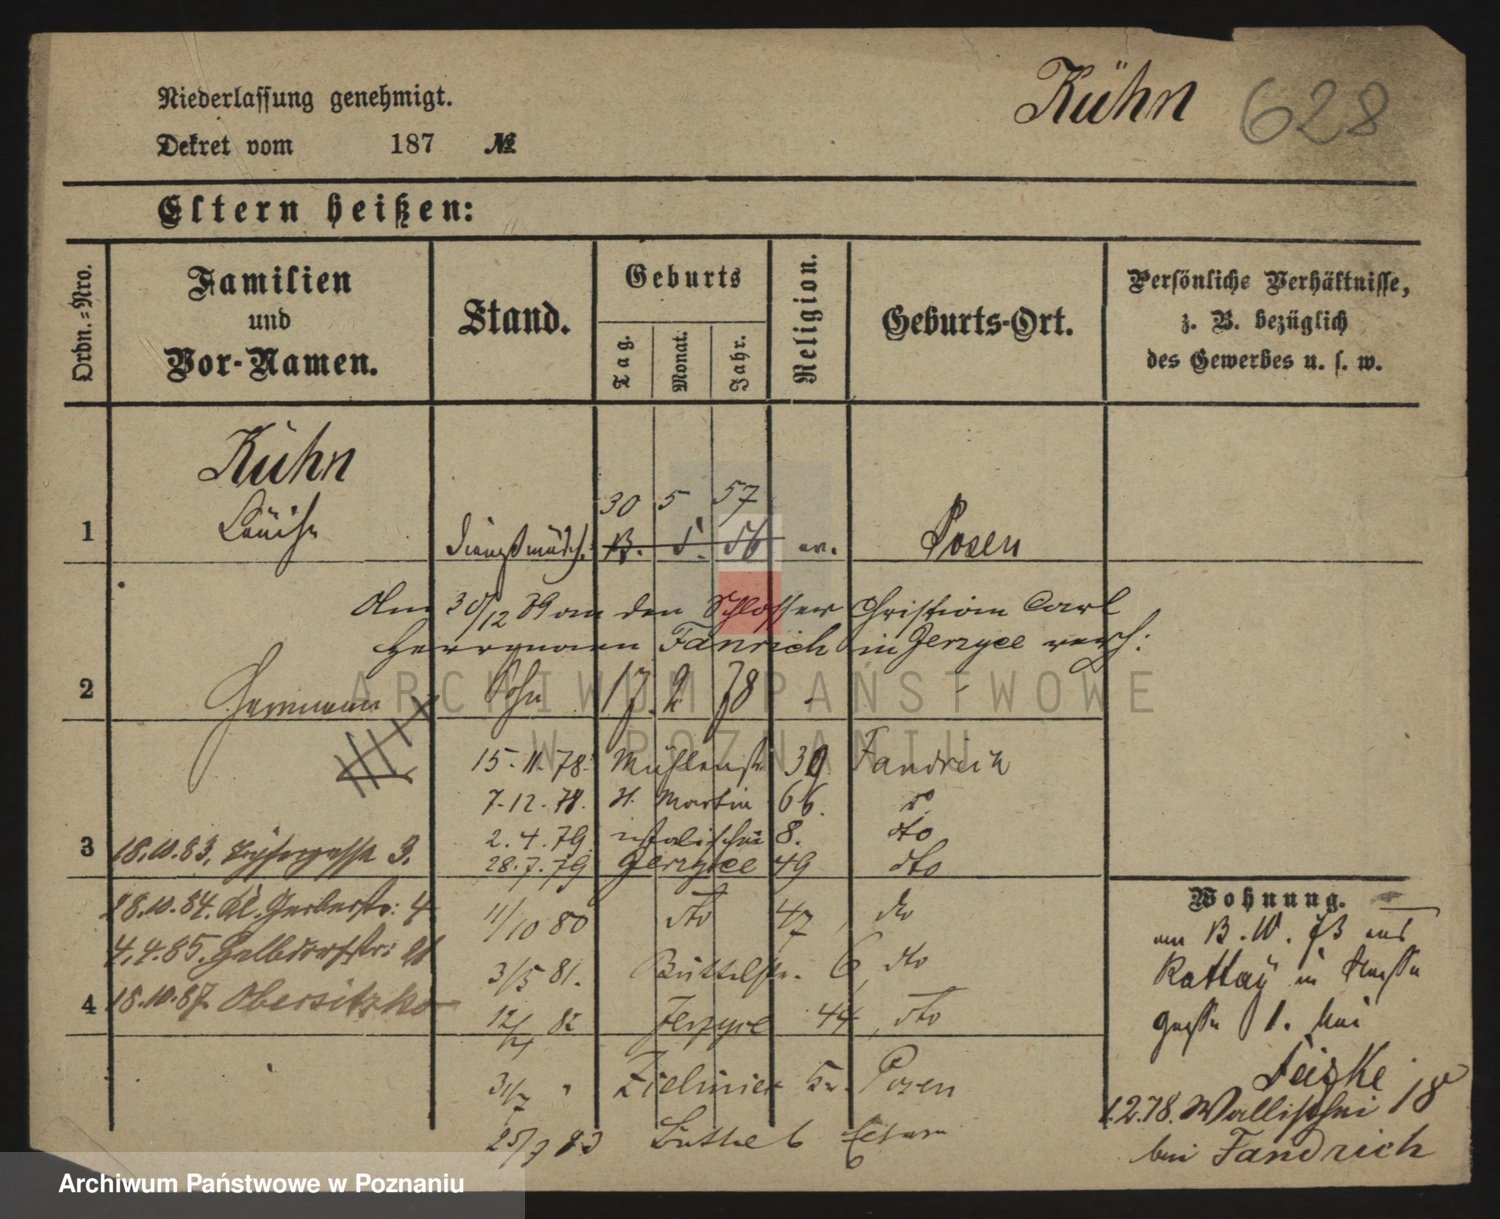 Niederlassung genehmigt.
Dekret vom 187 №
Kühn 628
Eltern heißen:
Ordn.=Nro.
Familien
und
Vor-Namen.
Stand.
Geburts
Tag. Monat. Jahr.
Religion.
Geburts-Ort.
Persönliche Verhältnisse,
z. B. bezüglich
des Gewerbes u. s. w.
Kühn
30 5 57
1 Louise Dienstmädch. 13. 5. 56 ev. Posen
Am 30/12 89 an den Schlosser Christian Carl
Herrmann Fanrich in Jerzyce verh:
2 Hermann Sohn 17. 2 78
15.11.78. Mühlenstr 39 Fandrich
7.12.78. St. Martin 66.
2.4.79. 8. dto
3 18.10.83. 3. 28.7.79 Jerzyce 49 dto
28.10.84. Kl. Gerberstr: 4 11/10 80 dto 47, dto
4.4.85. 3/5 81. Büttelstr. 6, dto
4 18.10.87. Obersitzko 12/4 82 Jerzyce 44, dto
31/7 " Zieliniec Kr. Posen
25/7 83 6 Eltern
Wohnung.
am B. W. 73 aus
Rattay in
1. Mai
1.2.78. Wallischei 18
bei Fandrich
ARCHIWUM PAŃSTWOWE
W POZNANIU
Archiwum Państwowe w Poznaniu